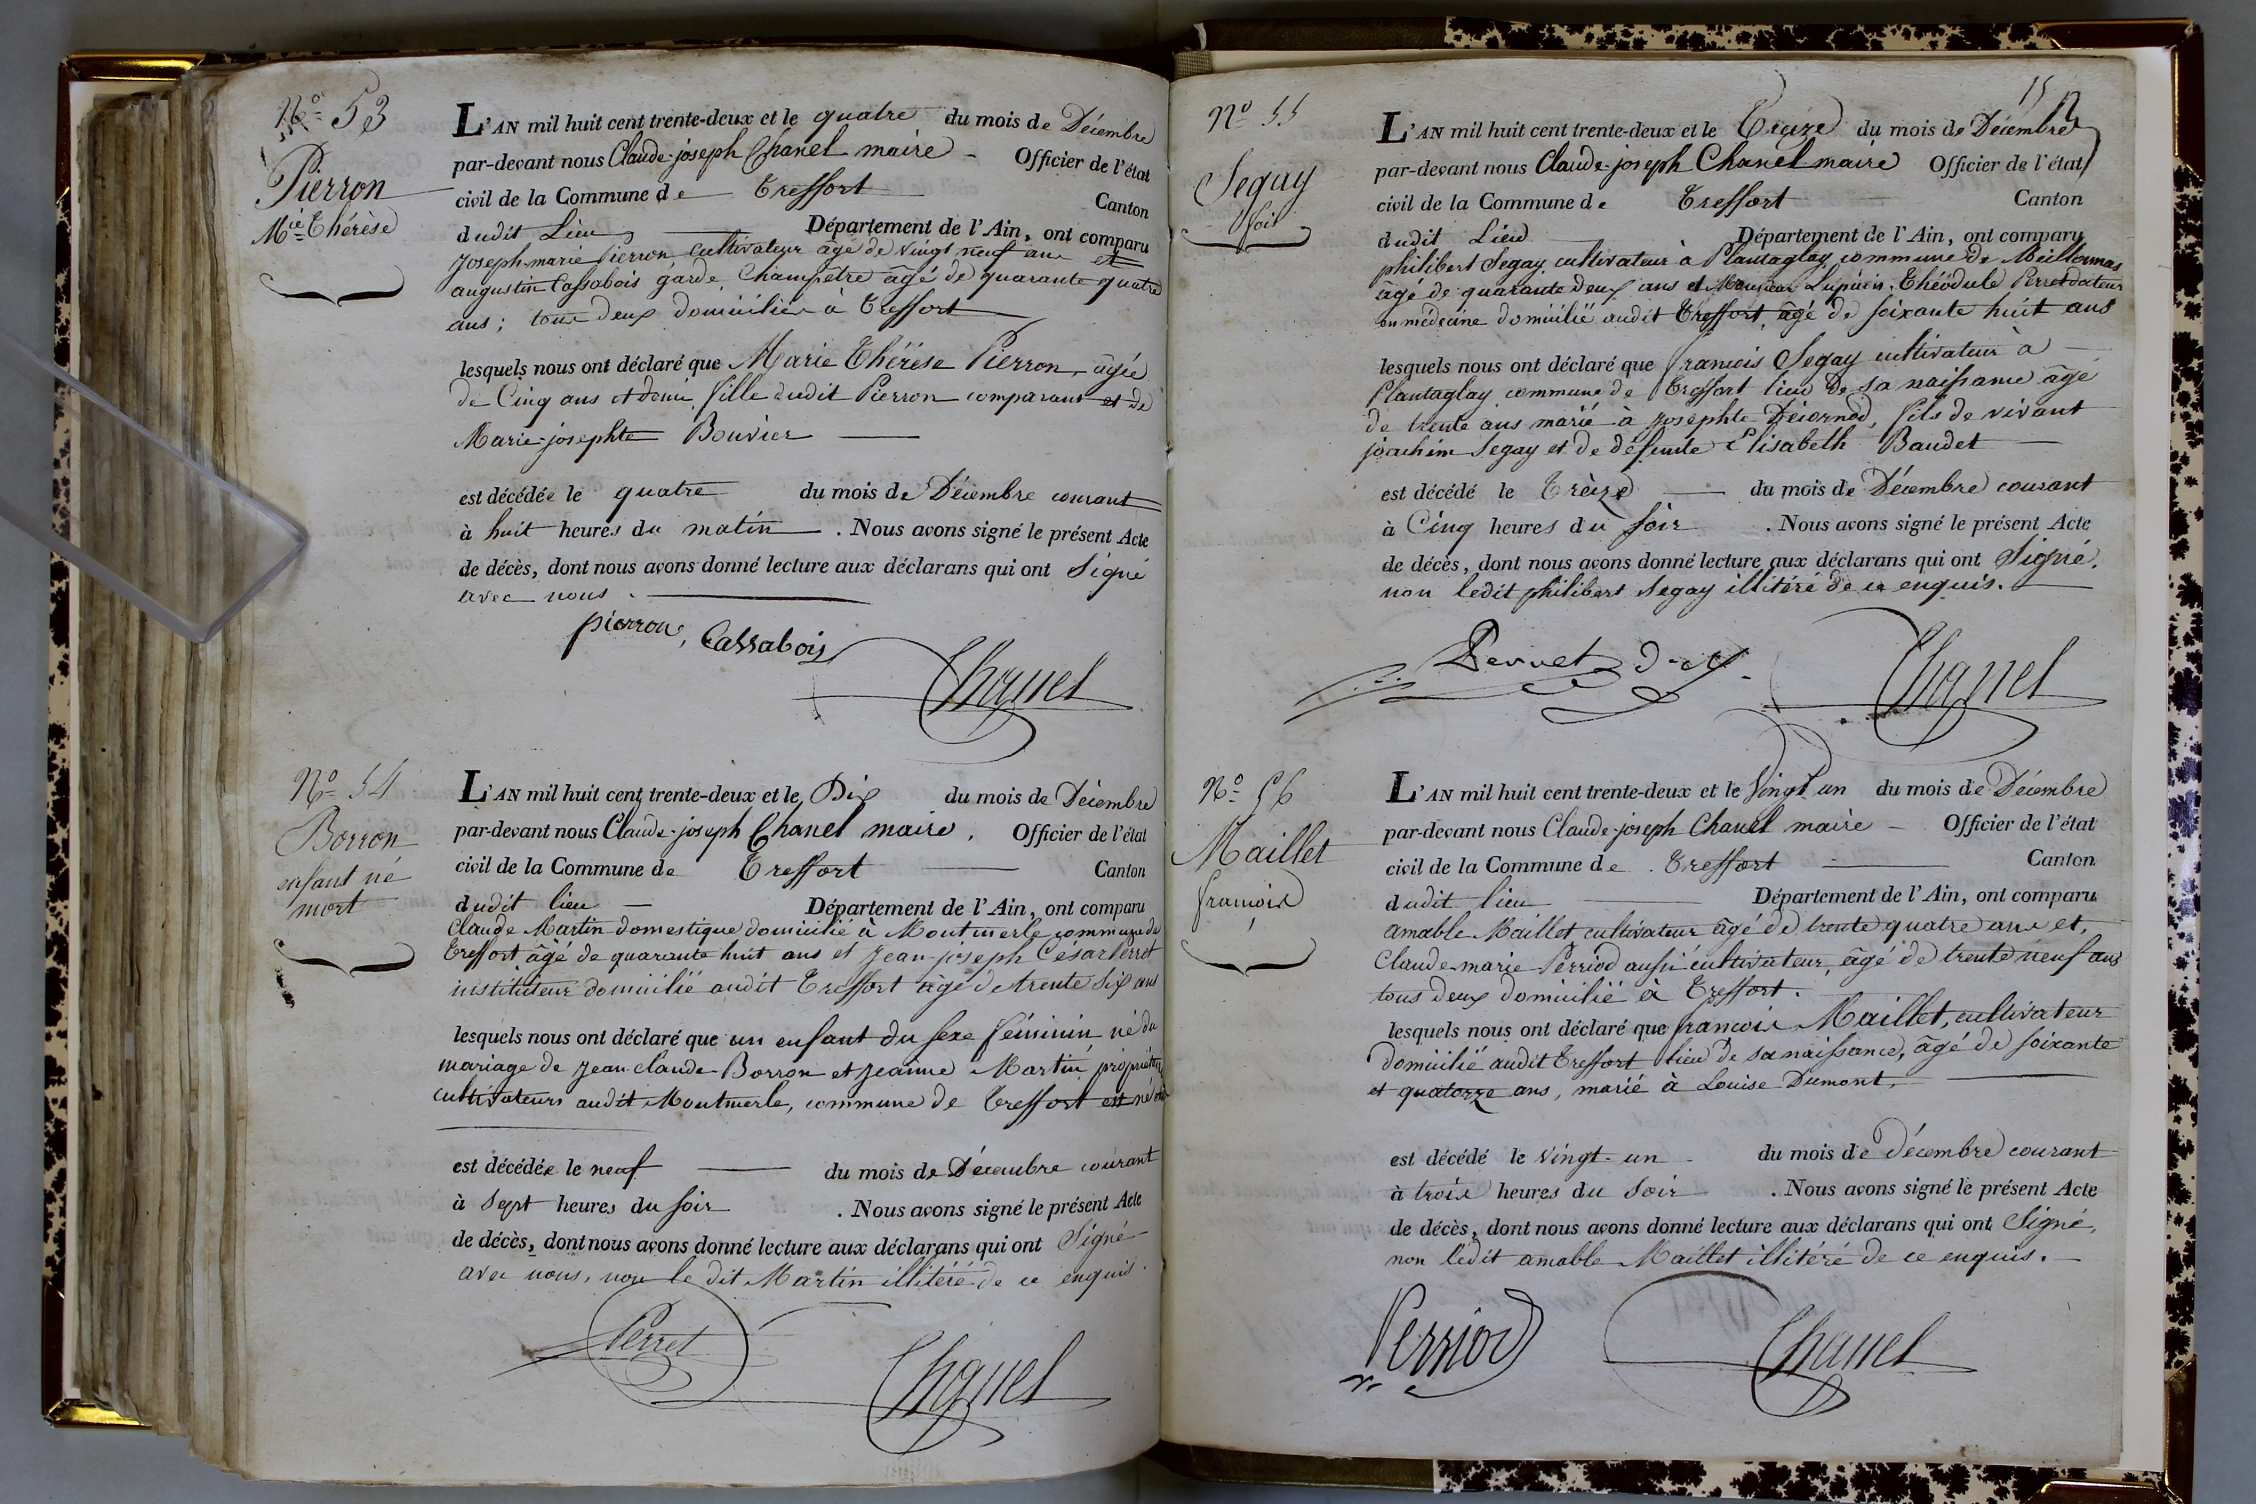 N° 53
Pierron
Mie Thérèse
L'AN mil huit cent trente-deux et le quatre du mois de Décembre
par-devant nous Claude-joseph Chanel maire - Officier de l'état
civil de la Commune de Treffort Canton
dudit Lieu Département de l'Ain, ont comparu
Joseph-marie Pierron cultivateur âgé de vingt neuf ans et
augustin Cassabois garde Champêtre âgé de quarante quatre
ans; tous deux domiciliés à Treffort
lesquels nous ont déclaré que Marie Thérèse Pierron, âgée
de Cinq ans et demi, fille dudit Pierron comparant et de
Marie-josephte Bouvier
est décédée le quatre du mois de Décembre courant
à huit heures du matin . Nous avons signé le présent Acte
de décès, dont nous avons donné lecture aux déclarans qui ont signé
avec nous.
pierron, Cassabois
Chanel
N° 54
Borron
enfant né
mort
L'AN mil huit cent trente-deux et le Dix du mois de Décembre
par-devant nous Claude-joseph Chanel maire, Officier de l'état
civil de la Commune de Treffort Canton
dudit lieu Département de l'Ain, ont comparu
Claude Martin domestique domicilié à Montmerle commune de
Treffort âgé de quarante huit ans et Jean-joseph César Perret
instituteur domicilié audit Treffort âgé de trente six ans
lesquels nous ont déclaré que un enfant du sexe féminin né du
mariage de Jean-claude Borron et Jeanne Martin, propriétaires
cultivateurs audit Montmerle, commune de Treffort est né
est décédée le neuf du mois de Décembre courant
à sept heures du soir . Nous avons signé le présent Acte
de décès, dont nous avons donné lecture aux déclarans qui ont Signé
avec nous, non le dit Martin illitéré de ce enquis.
Perret
Chanel
15
N° 55
Segay
L'AN mil huit cent trente-deux et le Treize du mois de Décembre
par-devant nous Claude-joseph Chanel maire Officier de l'état
civil de la Commune de Treffort Canton
dudit Lieu Département de l'Ain, ont comparu
philibert Segay cultivateur à Plantaglay commune de Meillonnas
âgé de quarante deux ans et Monsieur Lupicin, Théodule docteur
en médecine domicilié audit Treffort, âgé de soixante huit ans
lesquels nous ont déclaré que francois Segay cultivateur à
Plantaglay commune de Treffort lieu de sa naissance âgé
de trente ans marié à Josephte, fils de vivant
joachim Segay et de défunte Elisabeth Baudet
est décédé le Trèize du mois de Décembre courant
à Cinq heures du soir . Nous avons signé le présent Acte
de décès, dont nous avons donné lecture aux déclarans qui ont Signé,
non ledit philibert Segay illitéré de ce enquis.
Chanel
N° 56
Maillet
francois
L'AN mil huit cent trente-deux et le Vingt un du mois de Décembre
par-devant nous Claude-joseph Chanel maire - Officier de l'état
civil de la Commune de Treffort Canton
dudit lieu Département de l'Ain, ont comparu
amable Maillet cultivateur âgé de trente quatre ans et,
Claude-marie Perriod aussi cultivateur, âgé de trente neuf ans
tous deux domicilié à Treffort.
lesquels nous ont déclaré que francois Maillet, cultivateur
domicilié audit Treffort lieu de sa naissance, âgé de soixante
et quatorze ans, marié à Louise Dumont,
est décédé le vingt-un du mois de Décembre courant
à trois heures du soir . Nous avons signé le présent Acte
de décès, dont nous avons donné lecture aux déclarans qui ont Signé,
non ledit amable Maillet illitéré de ce enquis.
Perriod
Chanel